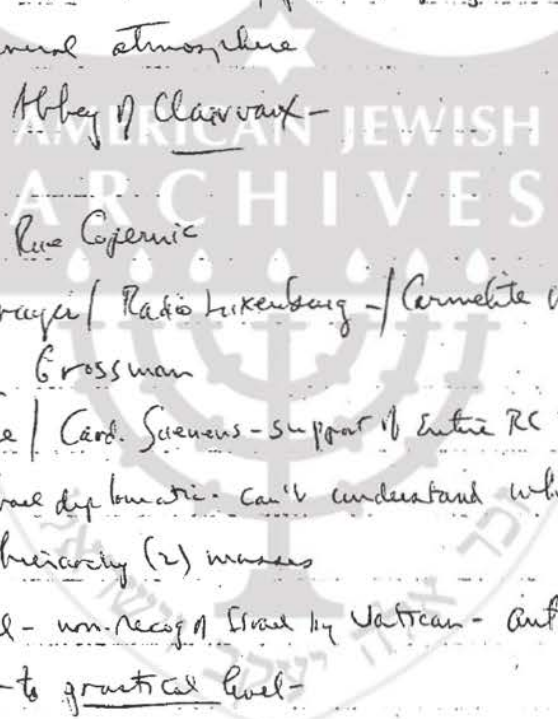 general atmosphere
Abbey of Clairvaux-
AMERICAN JEWISH
ARCHIVES
Rue Copernic
prayer / Radio Luxenburg - / Carmelite
Grossman
Card. Suenens - support of entire RC
diplomatic - can't understand
hierarchy (2) masses
non-recog of Israel by Vatican -
- to practical level -